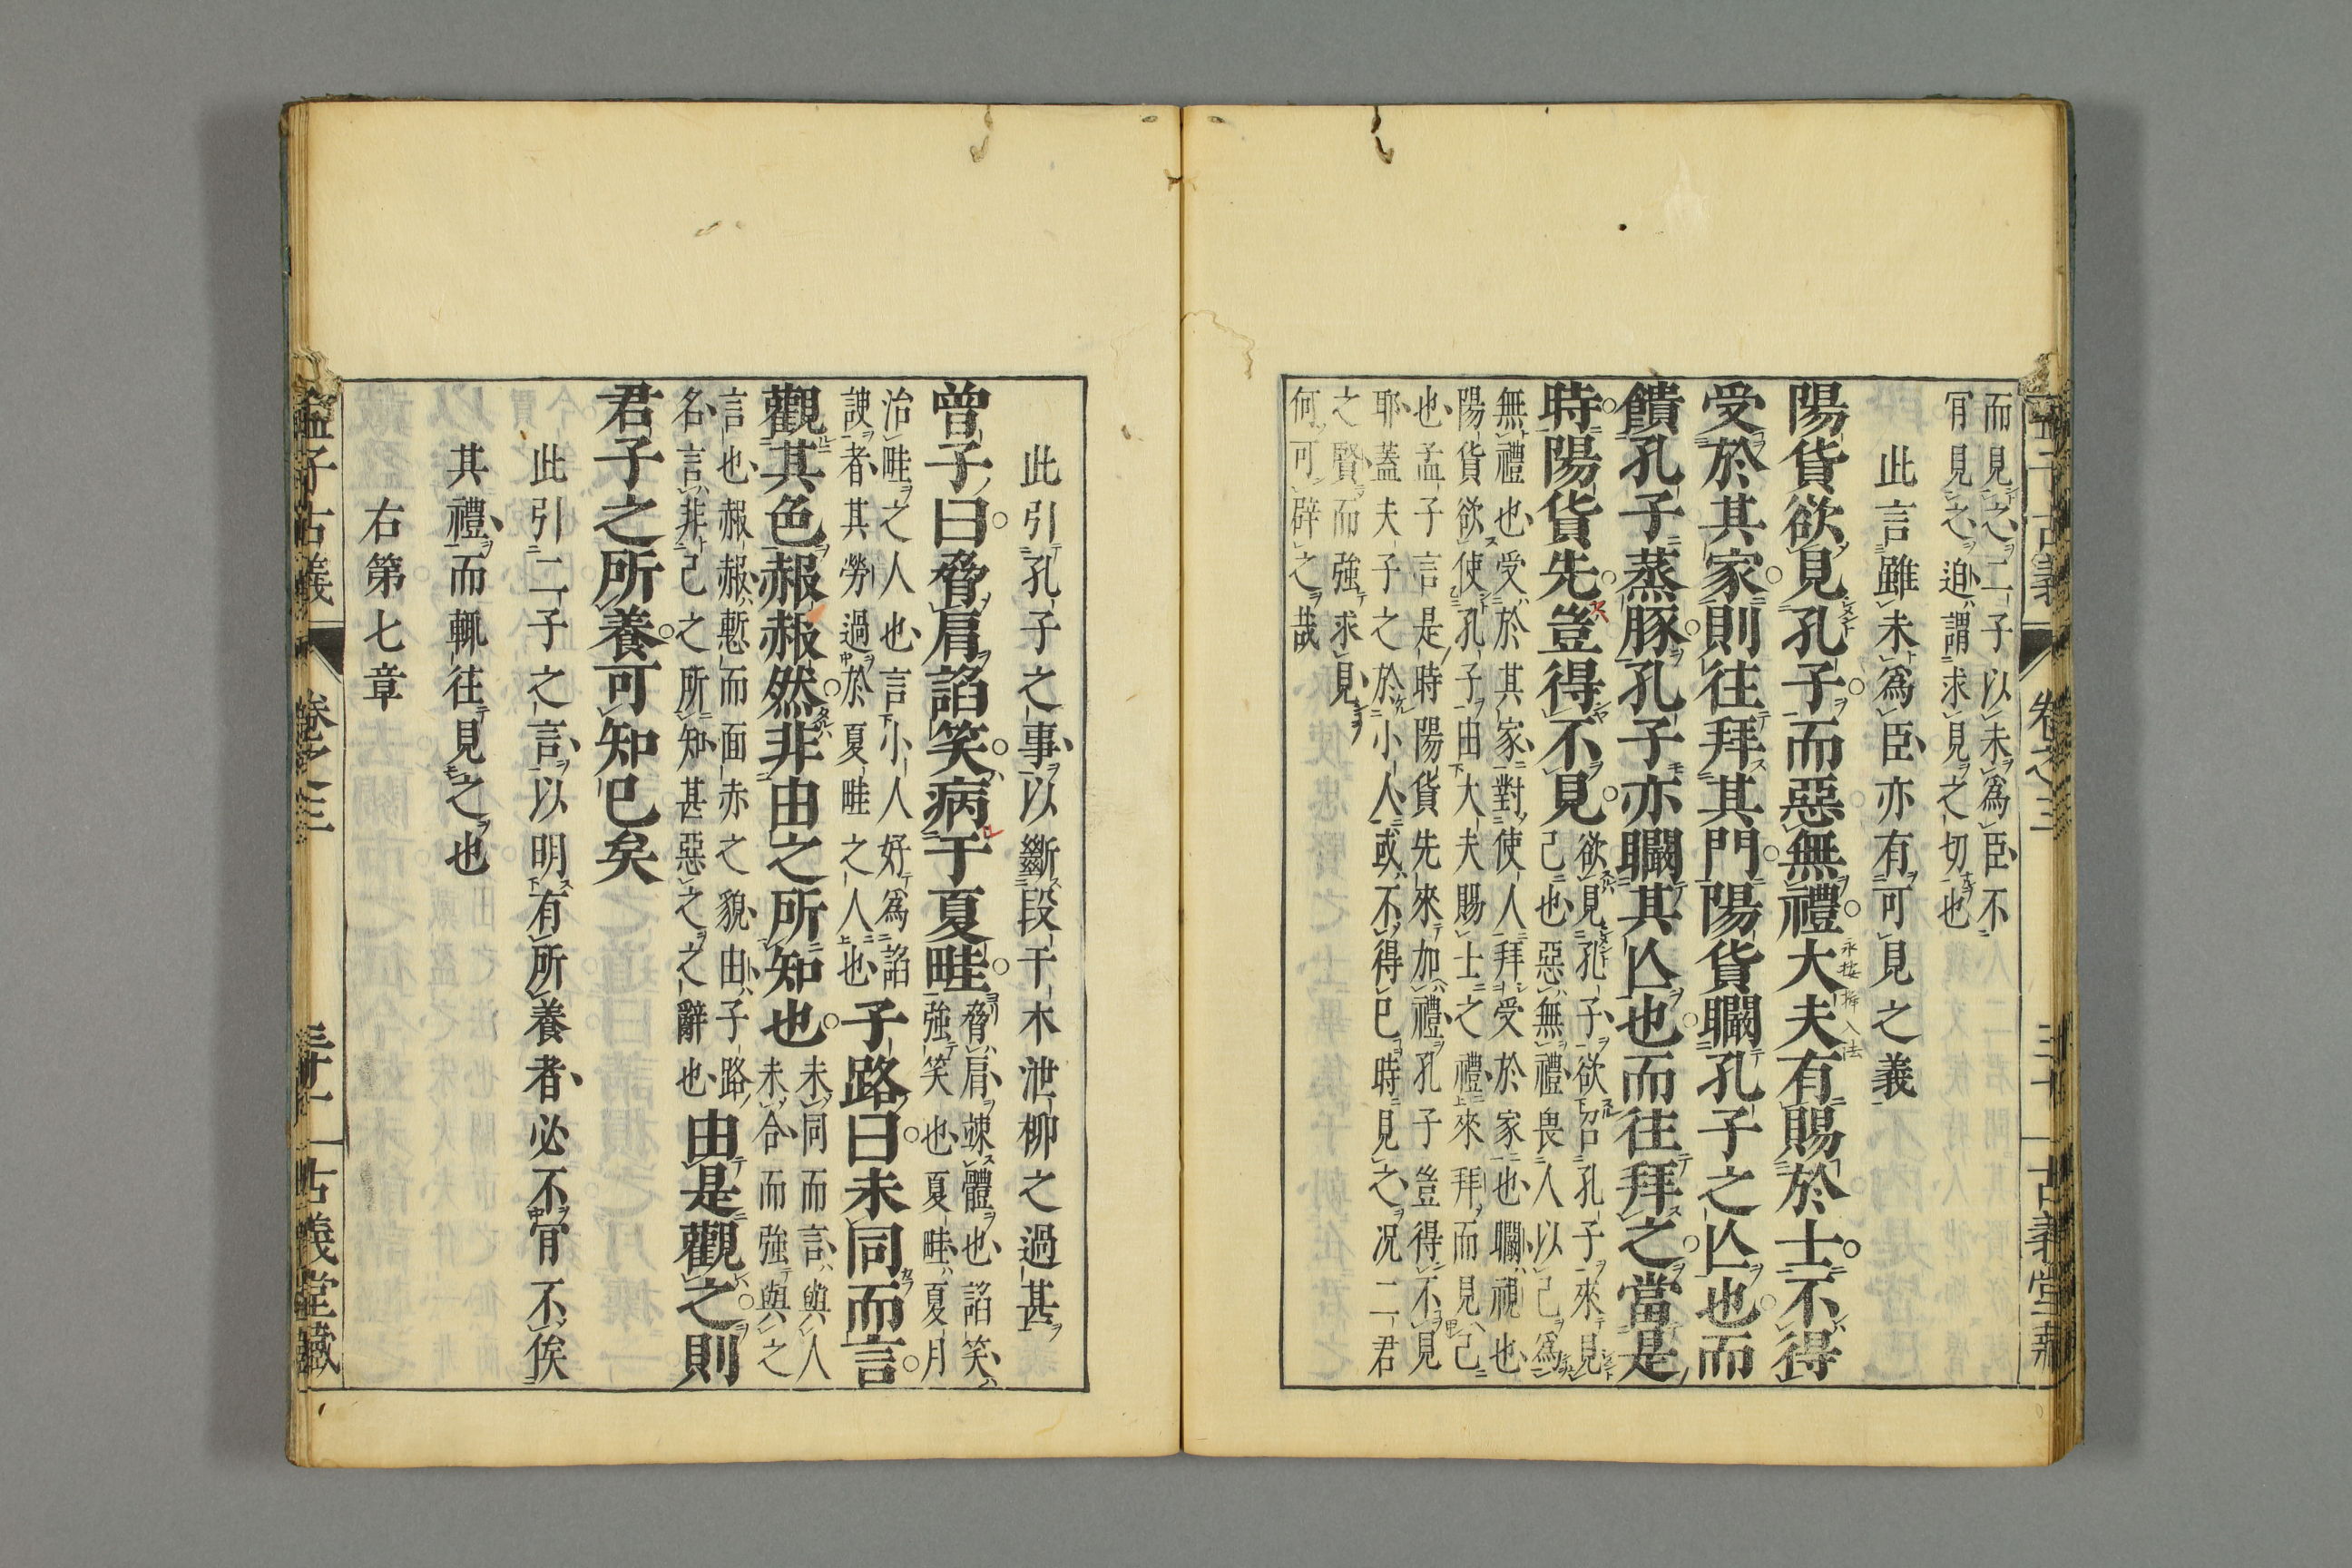 而見之二子以未爲臣不
肎見之迫謂求見之切也
此言雖未爲臣亦有可見之義
陽貨欲見孔子而惡無禮大夫有賜於士不得
受於其家則往拜其門陽貨矙孔子之亾也而
饋孔子蒸豚孔子亦矙其亾也而往拜之當是
時陽貨先豈得不見
欲見孔子欲召孔子來見
己也惡無禮畏人以己爲
無禮也受於其家對使人拜受於家也矙視也
陽貨欲使孔子由大夫賜士之禮來拜而見己
也孟子言是時陽貨先來加禮孔子豈得不見
耶蓋夫子之於小人或不得已時見之况二君
之賢而強求見
何可辟之哉
孟子古義
卷之三
古義堂藏
此引孔子之事以斷段干木泄柳之過甚
曾子曰脅肩諂笑病于夏畦
脅肩竦體也諂笑
強笑也夏畦夏月
治畦之人也言小人好爲諂
諛者其勞過於夏畦之人也
子路曰未同而言
觀其色赧赧然非由之所知也
未同而言與人
未合而強與之
言也赧赧慙而面赤之貌由子路
名言非己之所知甚惡之之辭也
由是觀之則
君子之所養可知已矣
此引二子之言以明有所養者必不肎不俟
其禮而輒往見之也
右第七章
孟子古義
卷之三
古義堂藏